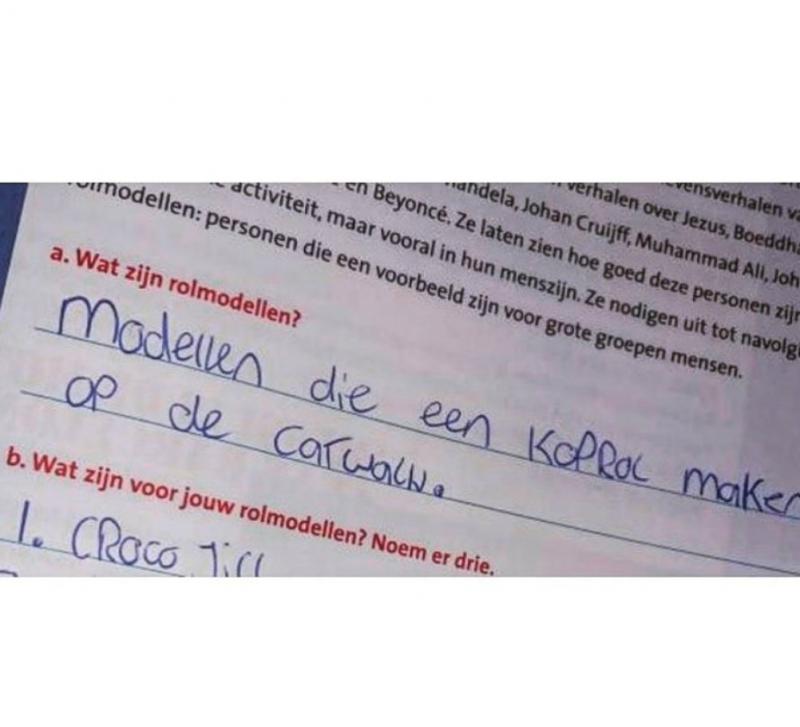 evensverhalen va
verhalen over Jezus, Boeddha
andela, Johan Cruijff, Muhammad Ali, Joh
en Beyoncé. Ze laten zien hoe goed deze personen zijn
activiteit, maar vooral in hun menszijn. Ze nodigen uit tot navolg
rolmodellen: personen die een voorbeeld zijn voor grote groepen mensen.
a. Wat zijn rolmodellen?
Modellen die een KOPROL maken
op de catwalk.
b. Wat zijn voor jouw rolmodellen? Noem er drie.
1. CROCO Jill